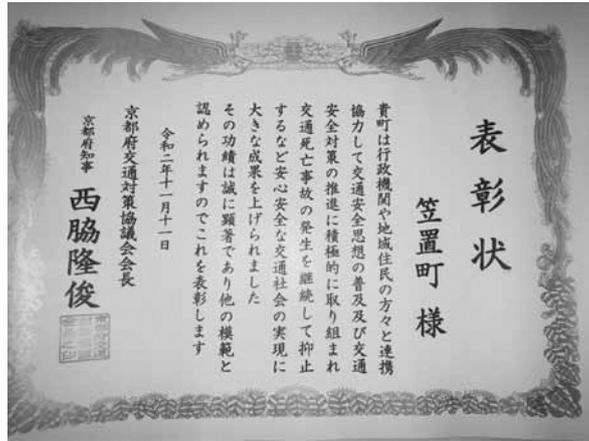 表彰状
笠置町 様
貴町は行政機関や地域住民の方々と連携
協力して交通安全思想の普及及び交通
安全対策の推進に積極的に取り組まれ
交通死亡事故の発生を継続して抑止
するなど安心安全な交通社会の実現に
大きな成果を上げられました
その功績は誠に顕著であり他の模範と
認められますのでこれを表彰します
令和二年十一月十一日
京都府交通対策協議会会長
京都府知事 西脇隆俊